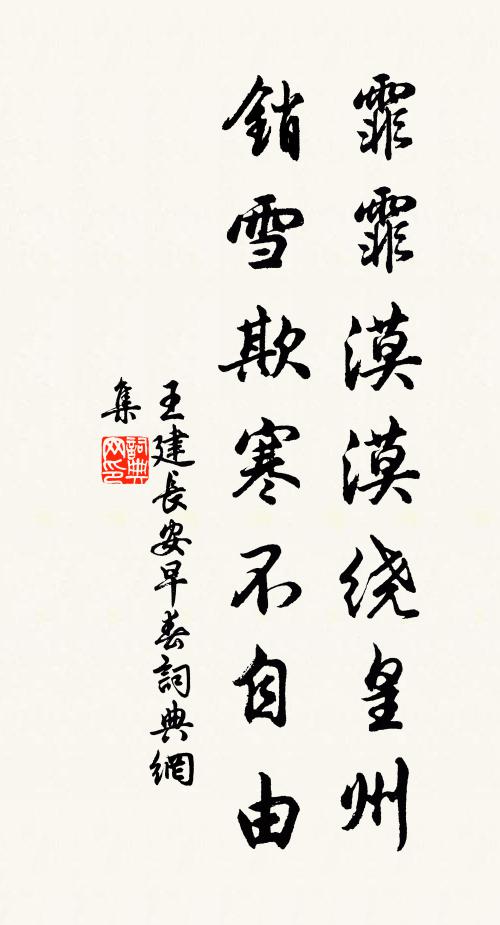 霏霏漠漠绕皇州
銷雪欺寒不自由
王建長安早春詞典網
集
詞典
网印